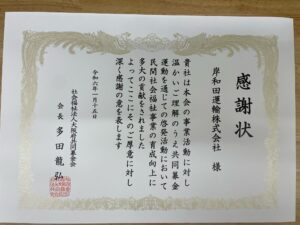 感謝状
岸和田運輸株式会社 様
貴社は本会の事業活動に対し
温かいご理解のうえ共同募金
運動を通じての啓発活動において
民間社会福祉事業の育成向上に
多大の貢献をされました
よってここにそのご厚意に対し
深く感謝の意を表します
令和六年一月十五日
社会福祉法人大阪府共同募金会
会長 多田龍弘